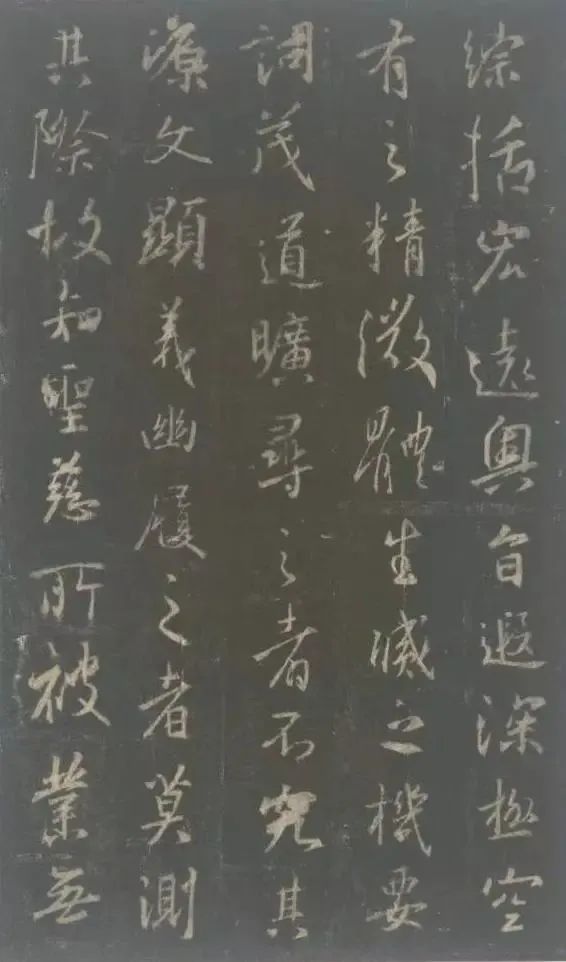 综括宏遠奧旨遐深極空
有之精微體生滅之機要
詞茂道曠尋之者不究其
源文顯義幽履之者莫測
其際故知聖慈所被業無